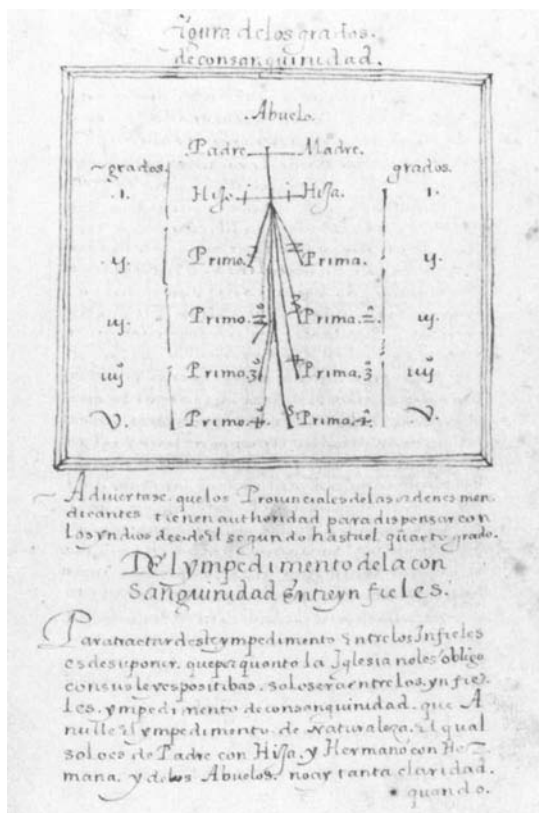 figura delos grados.
deconsanguinidad.
Abuelo.
Padre Madre.
grados. grados.
.I. Hijo I I Hija. I.
ij. Primo. Prima. ij.
iij. Primo. 2º Prima. 2ª iij.
iiij Primo. 3º Prima. 3º iiij
V. Primo. 4º 5 Prima. 4º V.
Adiviertase. quelos Provinciales delas ordenes men
dicantes tienen authoridad paradispensar con
los yndios desde el segundo hastael quarto grado.
DEl ympedimento dela con
sanguinidad Entre yn fieles.
Paratractar deste ympedimento Entrelos Infieles
es desuponer. quepor quanto la Iglesia noles obligo
consus leyes positibas. solo sera entrelos. yn fie
les. ympedimento deconsanguinidad. que A
nulle el ympedimento de Naturaleza. el qual
solo es de Padre con Hija, y Hermano con Her
mana. y delos Abuelos. noay tanta claridad.
quando.